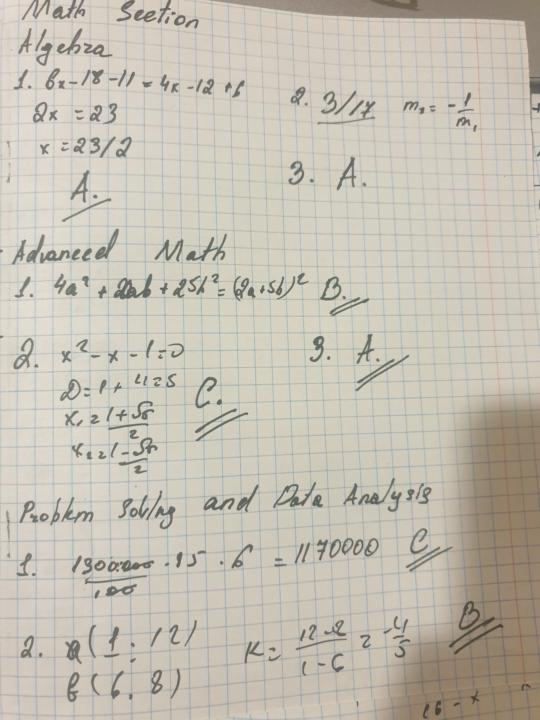 Math Section
Algebra
1. 6x-18-11=4x-12+6
2x = 23
x = 23/2
A.
2. 3/17 m₂ = -1/m₁
3. A.
Advanced Math
1. 4a² + 20ab + 25b² = (2a+5b)² B.
2. x² - x - 1 = 0
D = 1 + 4 = 5
x₁ = 1+√5/2
x₂ = 1-√5/2
C.
3. A.
Problem Solving and Data Analysis
1. 1300000/100 · 15 · 6 = 1170000 C
2. a(1; 12)
b(6. 8)
K = 12-8/1-6 = -4/5 B
16 - x